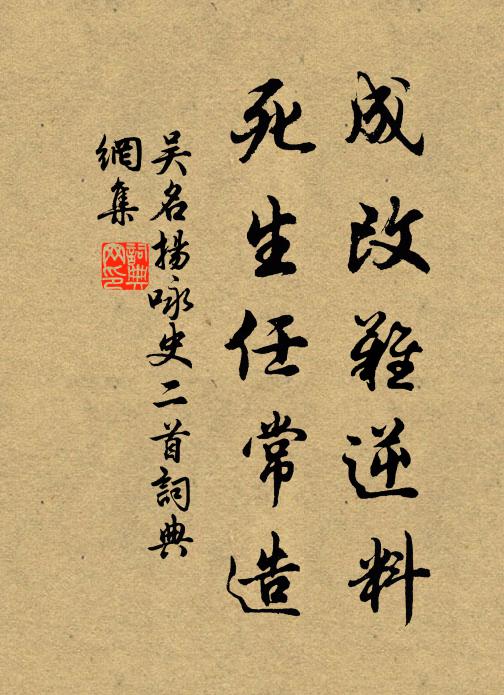 成改難逆料
死生任常造
吴名揚咏史二首詞典
網集
詞典
网印